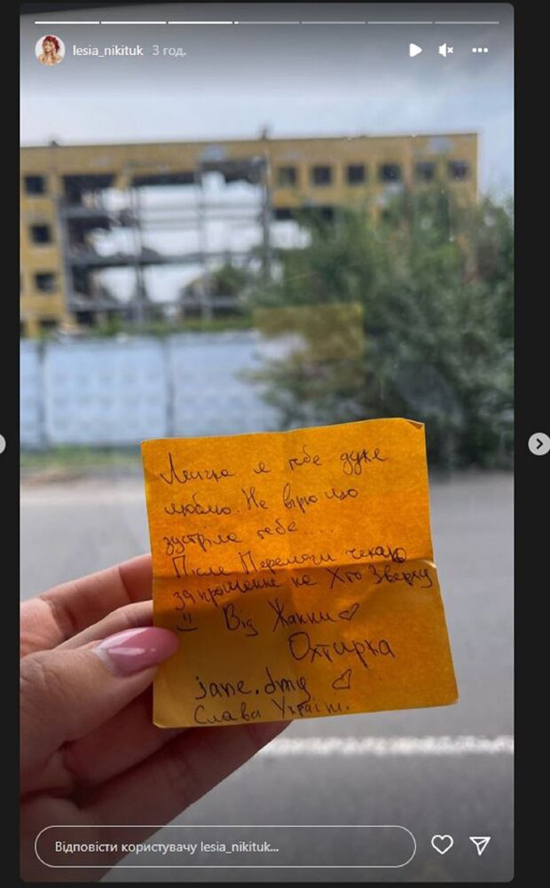 lesia_nikituk 3 год.
я тебе дуже
люблю. Не вірю що
зустріла тебе...
Після Перемоги чекаю
запрошення на Хто Зверху
Від Жанни
Охтирка
jane.dmg
Слава Україні.
Відповісти користувачу lesia_nikituk...